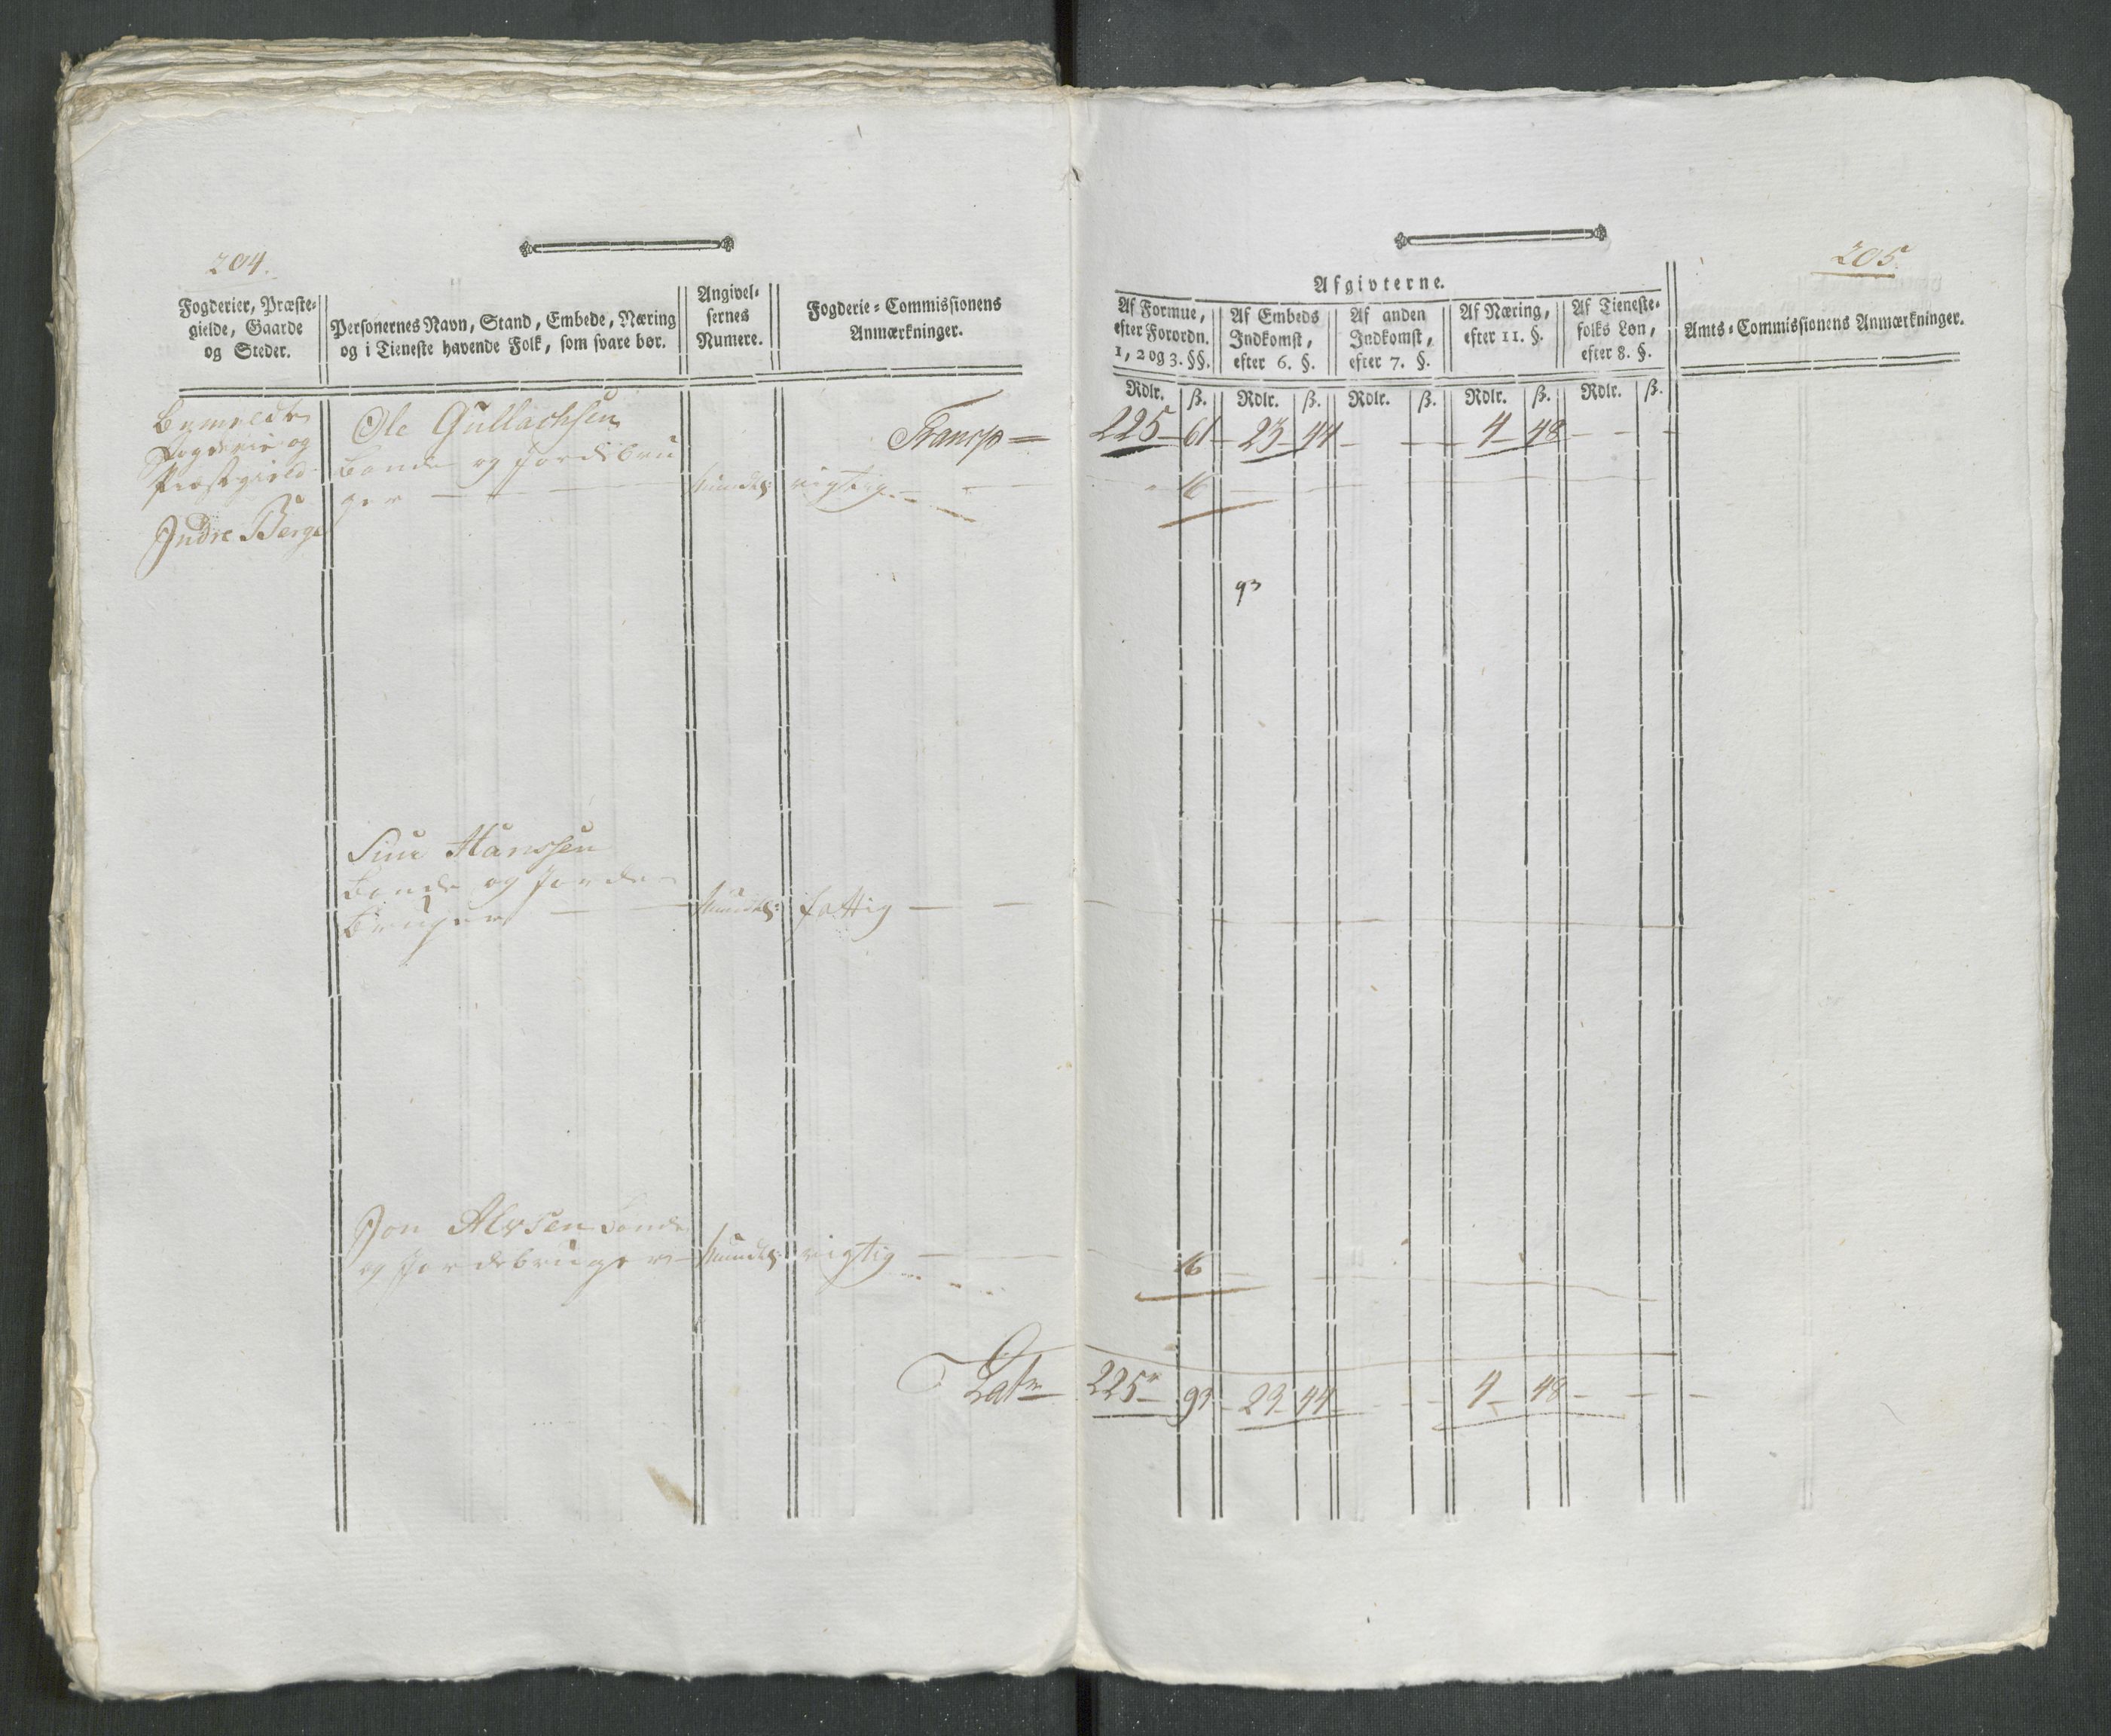 204.
Fogderier, Præste-
gielde, Gaarde
og Steder.
Personernes Navn, Stand, Embede, Næring
og i Tieneste havende Folk, som svare bør.
Angivel-
sernes
Numere.
Fogderie-Commissionens
Anmærkninger.
Bemeldte
Fogderie og
Præstegield
Indre Berge
Ole Gullachsen
Bonde og Jordebru
ger
Mundtl:
rigtig
Transp
Hanssen
Bonde og Jorde-
Bruger
Mundtl:
fattig
Jon Alvsen Bonde
og Jordebruger
Mundtl:
rigtig
Lat
205
Afgivterne.
Af Formue,
efter Forordn.
1, 2 og 3. §§.
Af Embeds
Indkomst,
efter 6. §.
Af anden
Indkomst,
efter 7. §.
Af Næring,
efter 11. §.
Af Tieneste-
folks Løn,
efter 8. §.
Amts-Commissionens Anmærkninger.
Rdlr. ß. Rdlr. ß. Rdlr. ß. Rdlr. ß. Rdlr. ß.
225 61 23 44 4 48
16
93
16
225 93 23 44 4 48